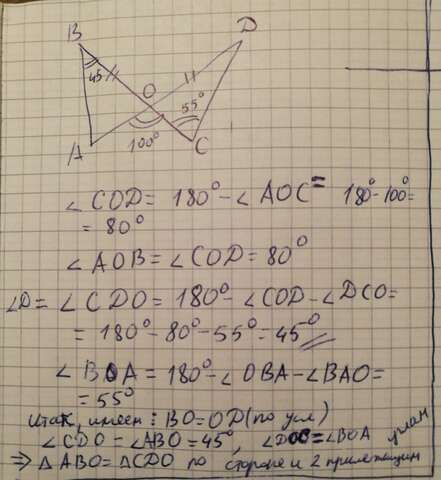 B
D
45
O
55°
A
100°
C
∠COD = 180° - ∠AOC = 180° - 100° =
= 80°
∠AOB = ∠COD = 80°
∠D = ∠CDO = 180° - ∠COD - ∠DCO =
= 180° - 80° - 55° = 45°
∠BOA = 180° - ∠OBA - ∠BAO =
= 55°
Итак, имеем: BO = OD (по усл)
∠CDO = ∠ABO = 45°, ∠DOC = ∠BOA
⇒ △ABO = △CDO по стороне и 2 прилежащим
углам